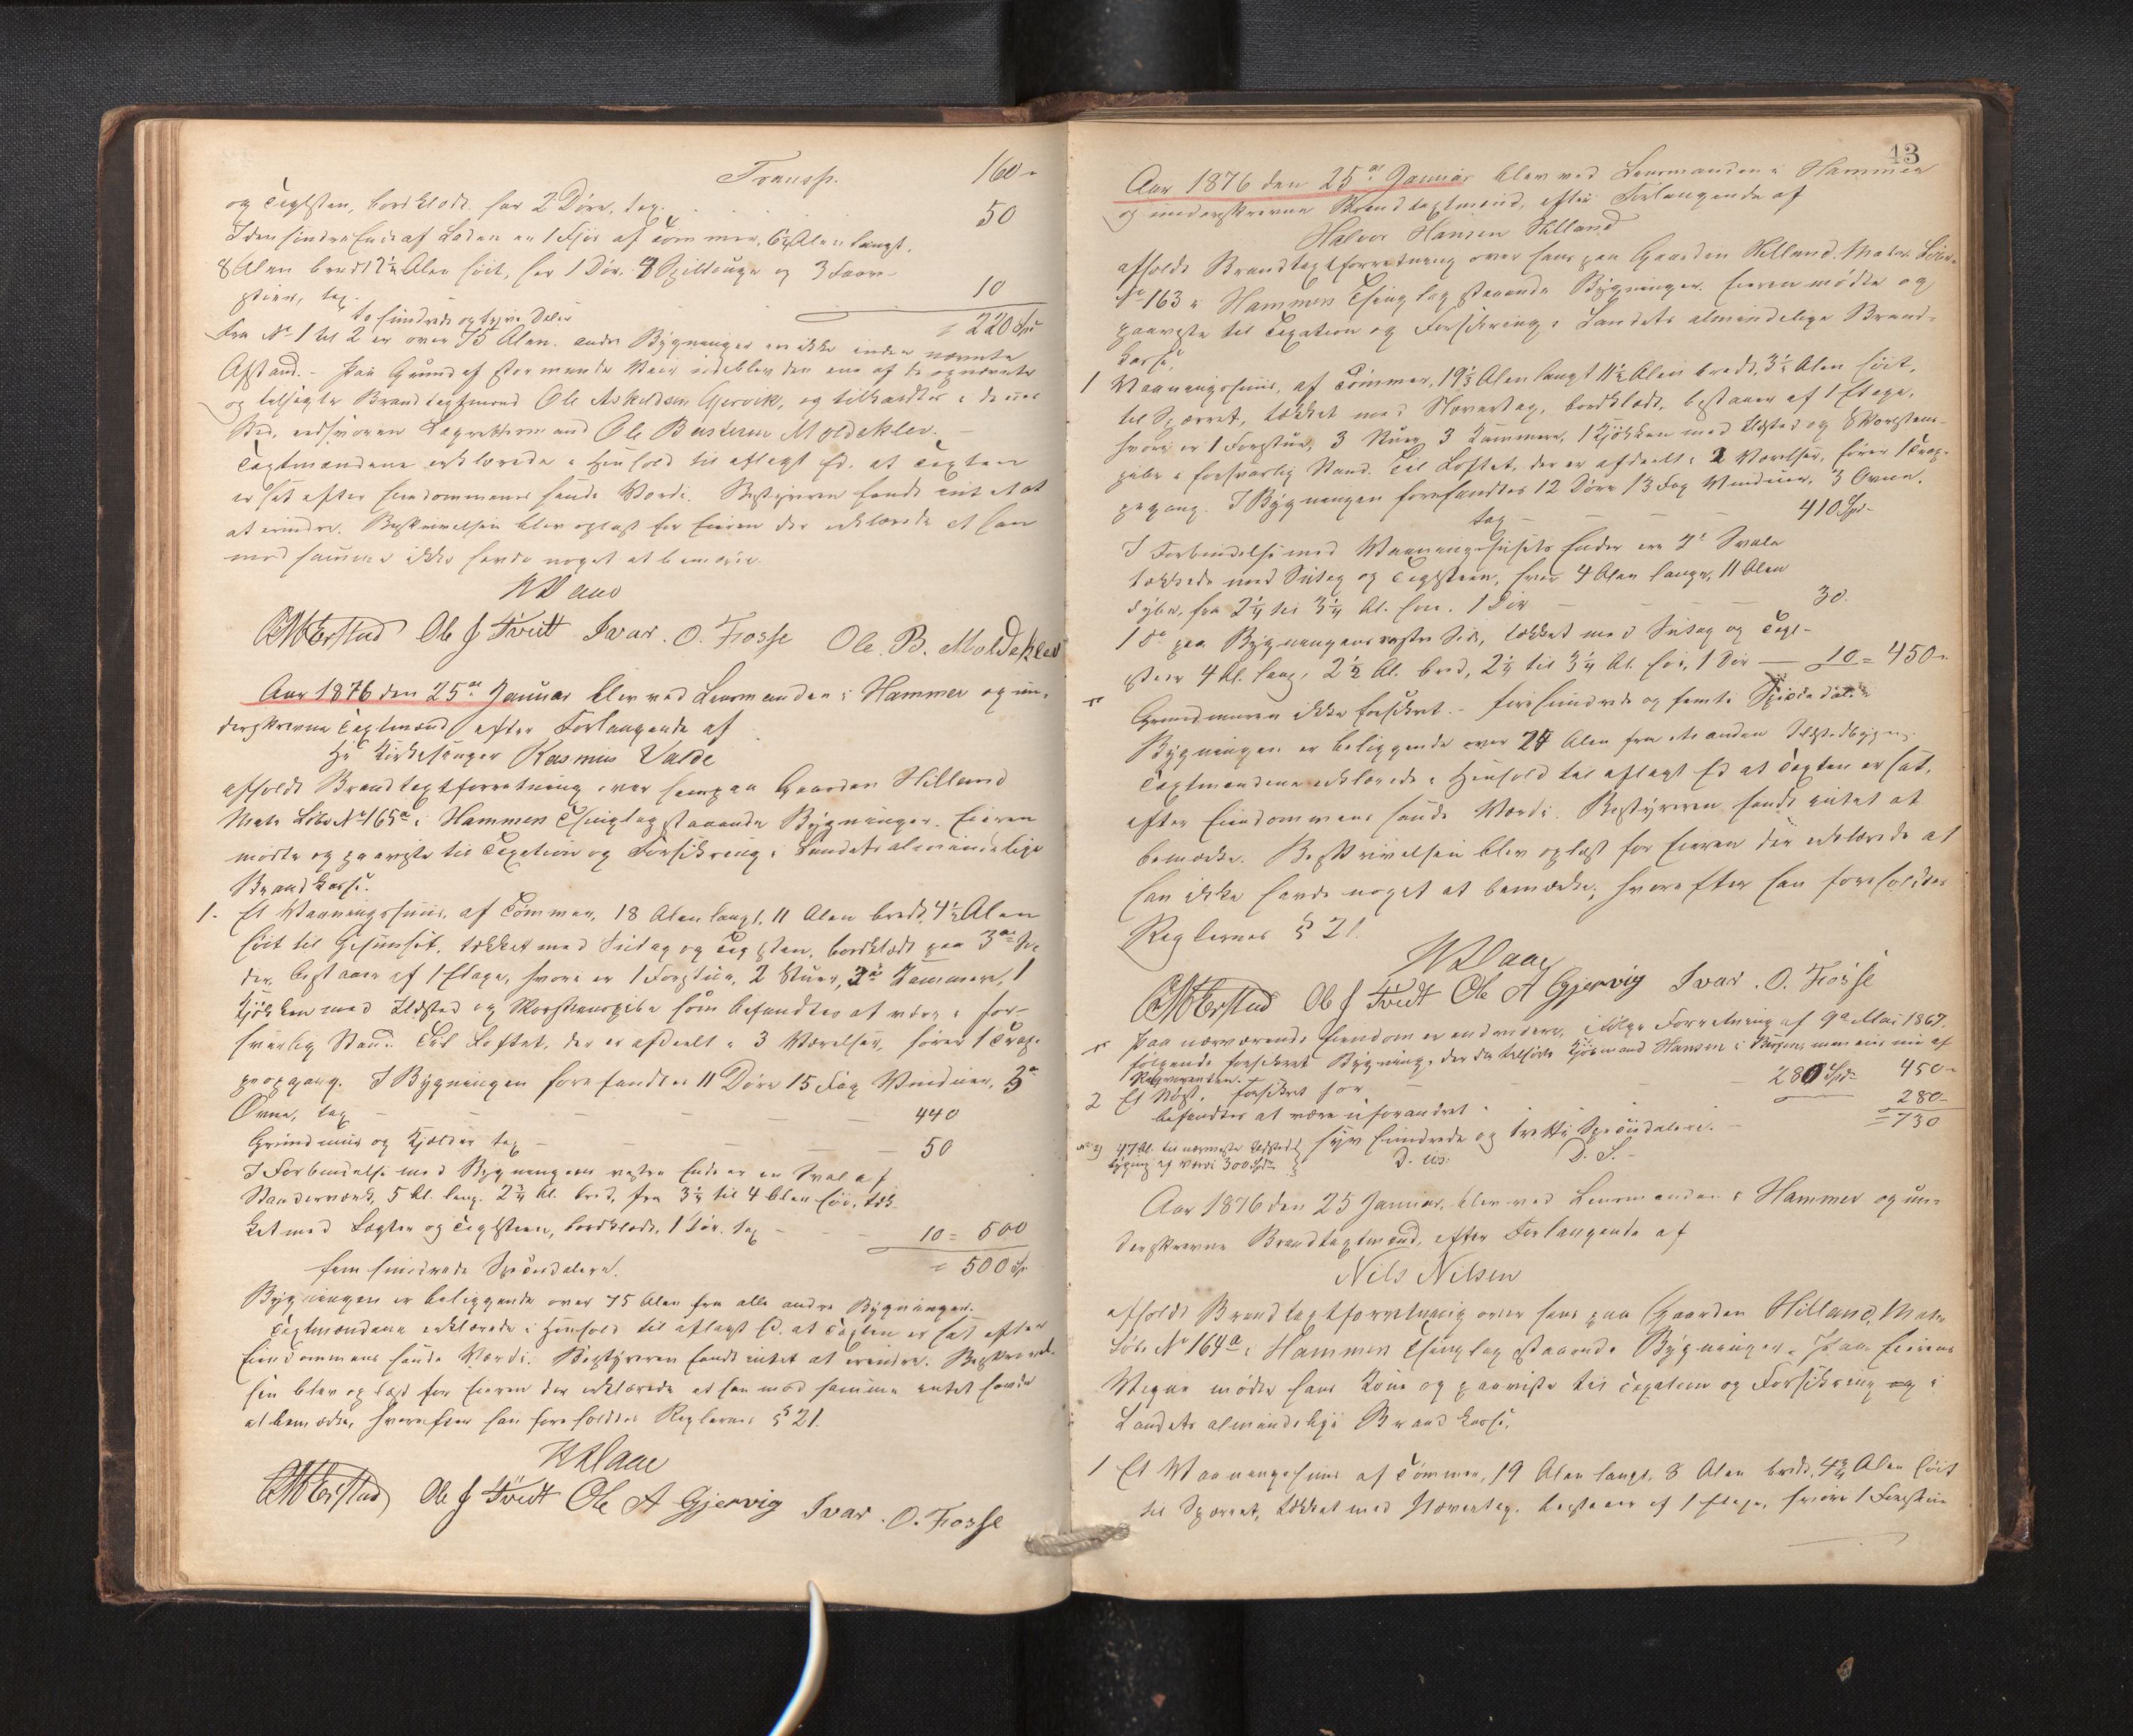 Transp. 160 -
og Teglsten, bordklædt har 2 Døre, tax. 50
I den søndre Ende af Laden er 1 Fjøs af Tømmer, 6½ Alen langt,
8 Alen bredt Alen høit, har 1 Dør, og 3
tax. 10
to hundrede og tyve Daler = 220 Spd
Fra No 1 til 2 er over 75 Alen. andre Bygninger er ikke inden nævnte
Afstand. - Paa Grund af stormende Veir udeblev den ene af de opnævnte
og tilsagte Brandtaxtmænd Ole Askildsen Gjervik, og tilkaldtes i dennes
Sted, edsvoren Lagrettemand Ole Moldeklev. -
Taxtmændene erklærede i Henhold til aflagt Ed, at Taxten
er sat efter Eiendommenes sande Værdi. Bestyreren fandt intet
at erindre. Beskrivelsen blev oplæst for Eieren der erklærede at han
mod samme ikke havde noget at bemærke.
Ole J Tvedt Ivar. O. Fosse Ole. B. Moldeklev
Aar 1876 den 25de Januar blev ved Lensmanden i Hammer og un-
derskrevne Taxtmænd efter Forlangende af
Hr Kirkesanger Rasmus Valde
afholdt Brandtaxtforretning over hans paa Gaarden Hilland
Matr. Løbe No 165a i Hammers Thinglag staaende Bygninger. Eieren
mødte og paaviste til Taxation og Forsikring i Landets almindelige
Brandkasse.
1. Et Vaaningshuus, af Tømmer, 18 Alen langt, 11 Alen bredt, 4½ Alen
høit til Gesimset, tækket med Sutag og Teglsten, bordklædt paa 3de Si-
der, bestaaer af 1 Etage, hvori er 1 Forstue, 2 Stuer, 3de Kammere, 1
Kjøkken med Ildsted og Skorstenspibe som befandtes at være i for-
svarlig Stand. Til Loftet, der er afdeelt i 3 Værelser, fører 1 Trap-
peopgang. I Bygningen forefandtes 11 Døre 15 Fag Vinduer, 3de
Ovne, tax - - - - 440
Grundmuur og Kjelder tax - - - 50
I Forbindelse med Bygningens vestre Ende er en Sval af
Standerværk, 5 Al. lang, 2¾ Al. bred, fra 3¼ til 4 Alen høi, tæk-
ket med Lægter og Teglsteen, bordklædt, 1 Dør, tax - 10 = 500
fem hundrede Speciedalere. = 500 Sp
Bygningen er beliggende over 75 Alen fra alle andre Bygninger.
Taxtmændene erklærede i Henhold til aflagt Ed, at Taxten er sat efter
Eiendommens sande Værdi. Bestyreren fandt intet at erindre. Beskrivel-
sen blev oplæst for Eieren der erklærede at han mod samme intet havde
at bemærke, hvorefter han foreholdtes Reglernes § 21.
Ole J Tvedt Ole A Gjervig Ivar. O. Fosse
43
Aar 1876 den 25de Januar blev ved Lensmanden i Hammer
og underskrevne Brandtaxtmænd, efter Forlangende af
Halvor Hansen Hilland
afholdt Brandtaxtforretning over hans paa Gaarden Hilland, Matr. Løbe-
No 163 i Hammers Thinglag staaende Bygninger. Eieren mødte og
paaviste til Taxation og Forsikring i Landets almindelige Brand-
kasse,
1 Vaaningshuus, af Tømmer, 19½ Alen langt 11½ Alen bredt, 3½ Alen høit,
til Sperret, tækket med Nævertag, bordklædt, bestaaer af 1 Etage,
hvori er 1 Forstue, 3 Stuer 3 Kammere, 1 Kjøkken med Ildsted og Skorstens-
pibe i forsvarlig Stand. Til Loftet, der er afdeelt i 2 Værelser, fører 1 Trap-
peopgang. I Bygningen forefandtes 12 Døre 13 Fag Vinduer, 3 Ovne,
tax - - - - 410 Spd -
I Forbindelse med Vaaningshusets Ender ere 2de Svale
tækkede med Sutag og Teglsteen, hver 4 Alen lange, 11 Alen
dybe, fra 2¼ til 3¼ Al. høie. 1 Dør - - - 30.
1 do paa Bygningens vestre Side, tækket med Sutag og Tegl-
steen 4 Al. lang, 2½ Al. bred, 2¼ til 3¼ Al. høi, 1 Dør — 10 = 450 -
Grundmuren ikke forsikret. - firehundrede og femti Speciedaler
Bygningen er beliggende over Alen fra
Taxtmændene erklærede i Henhold til aflagt Ed at Taxten er sat,
efter Eiendommens sande Værdi. Bestyreren fandt intet at
bemærke. Beskrivelsen blev oplæst for Eieren der erklærede at
han ikke havde noget at bemærke, hvorefter han foreholdtes
Reglernes § 21
Ole J Tvedt Ole A Gjervig Ivar. O. Fosse
Paa nærværende Eiendom er endvidere, ifølge Forretning af 9de Mai 1867.
følgende forsikret Bygning, der da tilhørte Kjøbmand Hansen i Bergen, men eies nu af
Rekvirenten. - 450 -
2 Et Nøst, forsikret for - - - 280 Spd 280 -
befandtes at være uforandret. = 730
syv hundrede og tretti Speciedalere. -
47 Al. til nærmeste Ildsted
bygning af Værdi 300 Spd
D. us. D. S. -
Aar 1876 den 25 Januar, blev ved Lensmanden i Hammer og un-
derskrevne Brandtaxtmænd, efter Forlangende af
Nils Nilsen
afholdt Brandtaxtforretning over hans paa Gaarden Hilland, Matr.
Løbe No 164a i Hammers Thinglag staaende Bygninger. Paa Eierens
Vegne mødte hans Kone og paaviste til Taxation og Forsikring og i
Landets almindelige Brandkasse,
1 Et Vaaningshuus af Tømmer, 19 Alen langt, 8 Alen bredt, 4¾ Alen høit
til Sperret, tækket med Nævertag, bestaaer af 1 Etage, hvori 1 Forstue